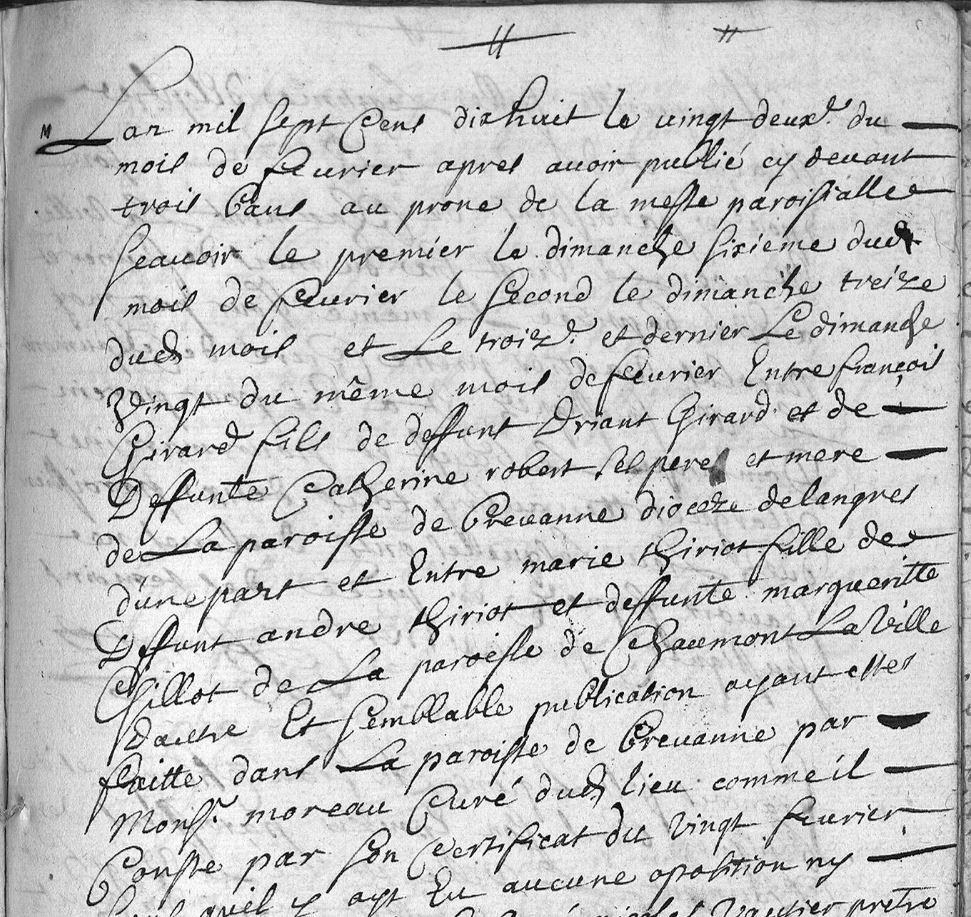 M
Lan mil sept Cens dixhuit le vingt deux.e du
mois de feuvrier apres avoir publié cy devant
trois bans au prone de la messe paroissialle
Scavoir le premier le dimanche sixieme dud
mois de feuvrier le second le dimanche treize
dud mois et Le troiz.e et dernier Le dimanche
Vingt du même mois de feuvrier Entre françois
Girard fils de deffunt Driant Girard et de
Deffunte Catherine robert ses pere et mere
de La paroisse de Brevanne dioceze de langres
dune part et Entre marie thiriot fille de
Deffunt andre thiriot et deffunte margueritte
Gillot de La paroisse de Chaumont La Ville
Dautre Et semblable publication ayant estes
faitte dans La paroisse de Brevanne par
Mons.r moreau Curé dud lieu comme il
Conste par son Certificat du vingt feuvrier
sans quil y ayt Eu aucune oposition ny
nicolas Vautier pretre